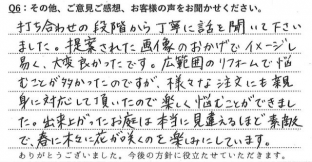 Q6：その他、ご意見ご感想、お客様の声をお聞かせください。
打ち合わせの段階から丁寧に話を聞いて下さい
ました。提案された画像のおかげでイメージし
易く、大変良かったです。広範囲のリフォームで悩
むことが多かったのですが、様々な注文にも親
身に対応して頂いたので楽しく悩むことができまし
た。出来上がったお庭は本当に見違えるほど素敵
で、春に木々に花が咲くのを楽みにしています。
ありがとうございました。今後の方針に役立たせていただきます。